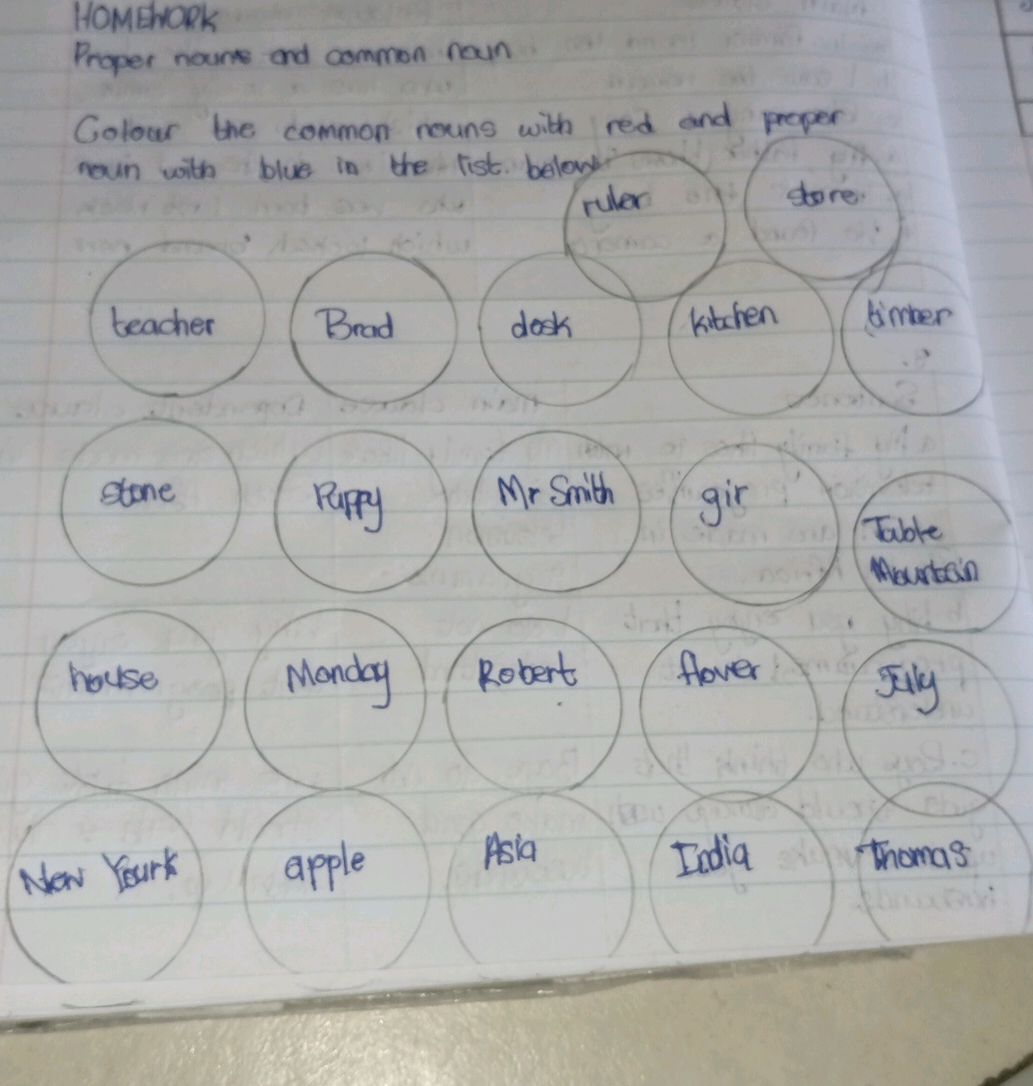 HOMEWORK
Proper nouns and common noun
Colour the common nouns with red and proper
noun with blue in the list below
ruler store
teacher Brad desk kitchen timber
stone Puppy Mr Smith gir
Table
Mountain
house Monday Robert flower July
New Yourk apple Asia India Thomas